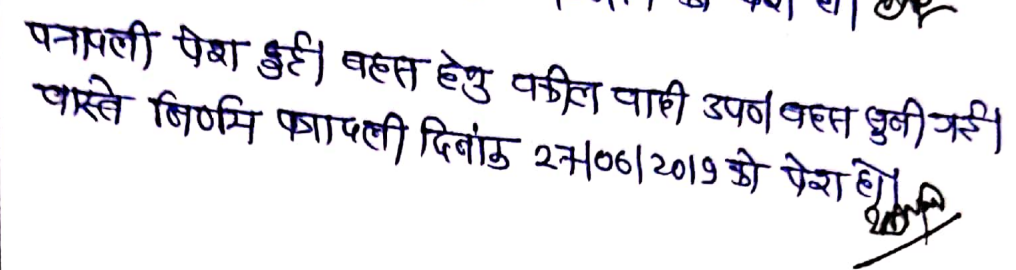 पत्रावली पेश हुई। बहस हेतु वकील वादी उप०। बहस सुनी गई।
वास्ते निर्णय पत्रावली दिनांक 27/06/2019 को पेश हो।